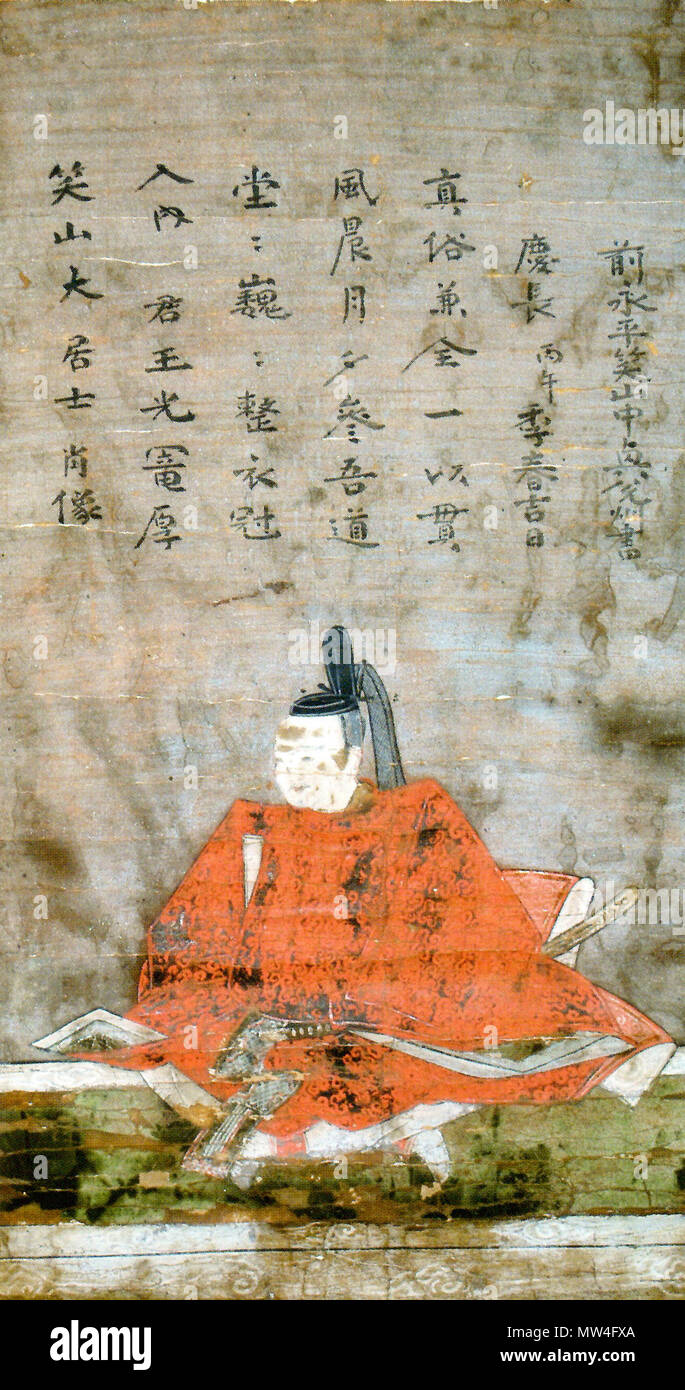 笑山大居士肖像
入内 君王光寵厚
堂〻巍〻整衣冠
風晨月夕參吾道
真俗兼全一以貫
慶長丙午季春吉日
前永平笑山中書
alamy
alamy
Image ID: MW4FXA
www.alamy.com